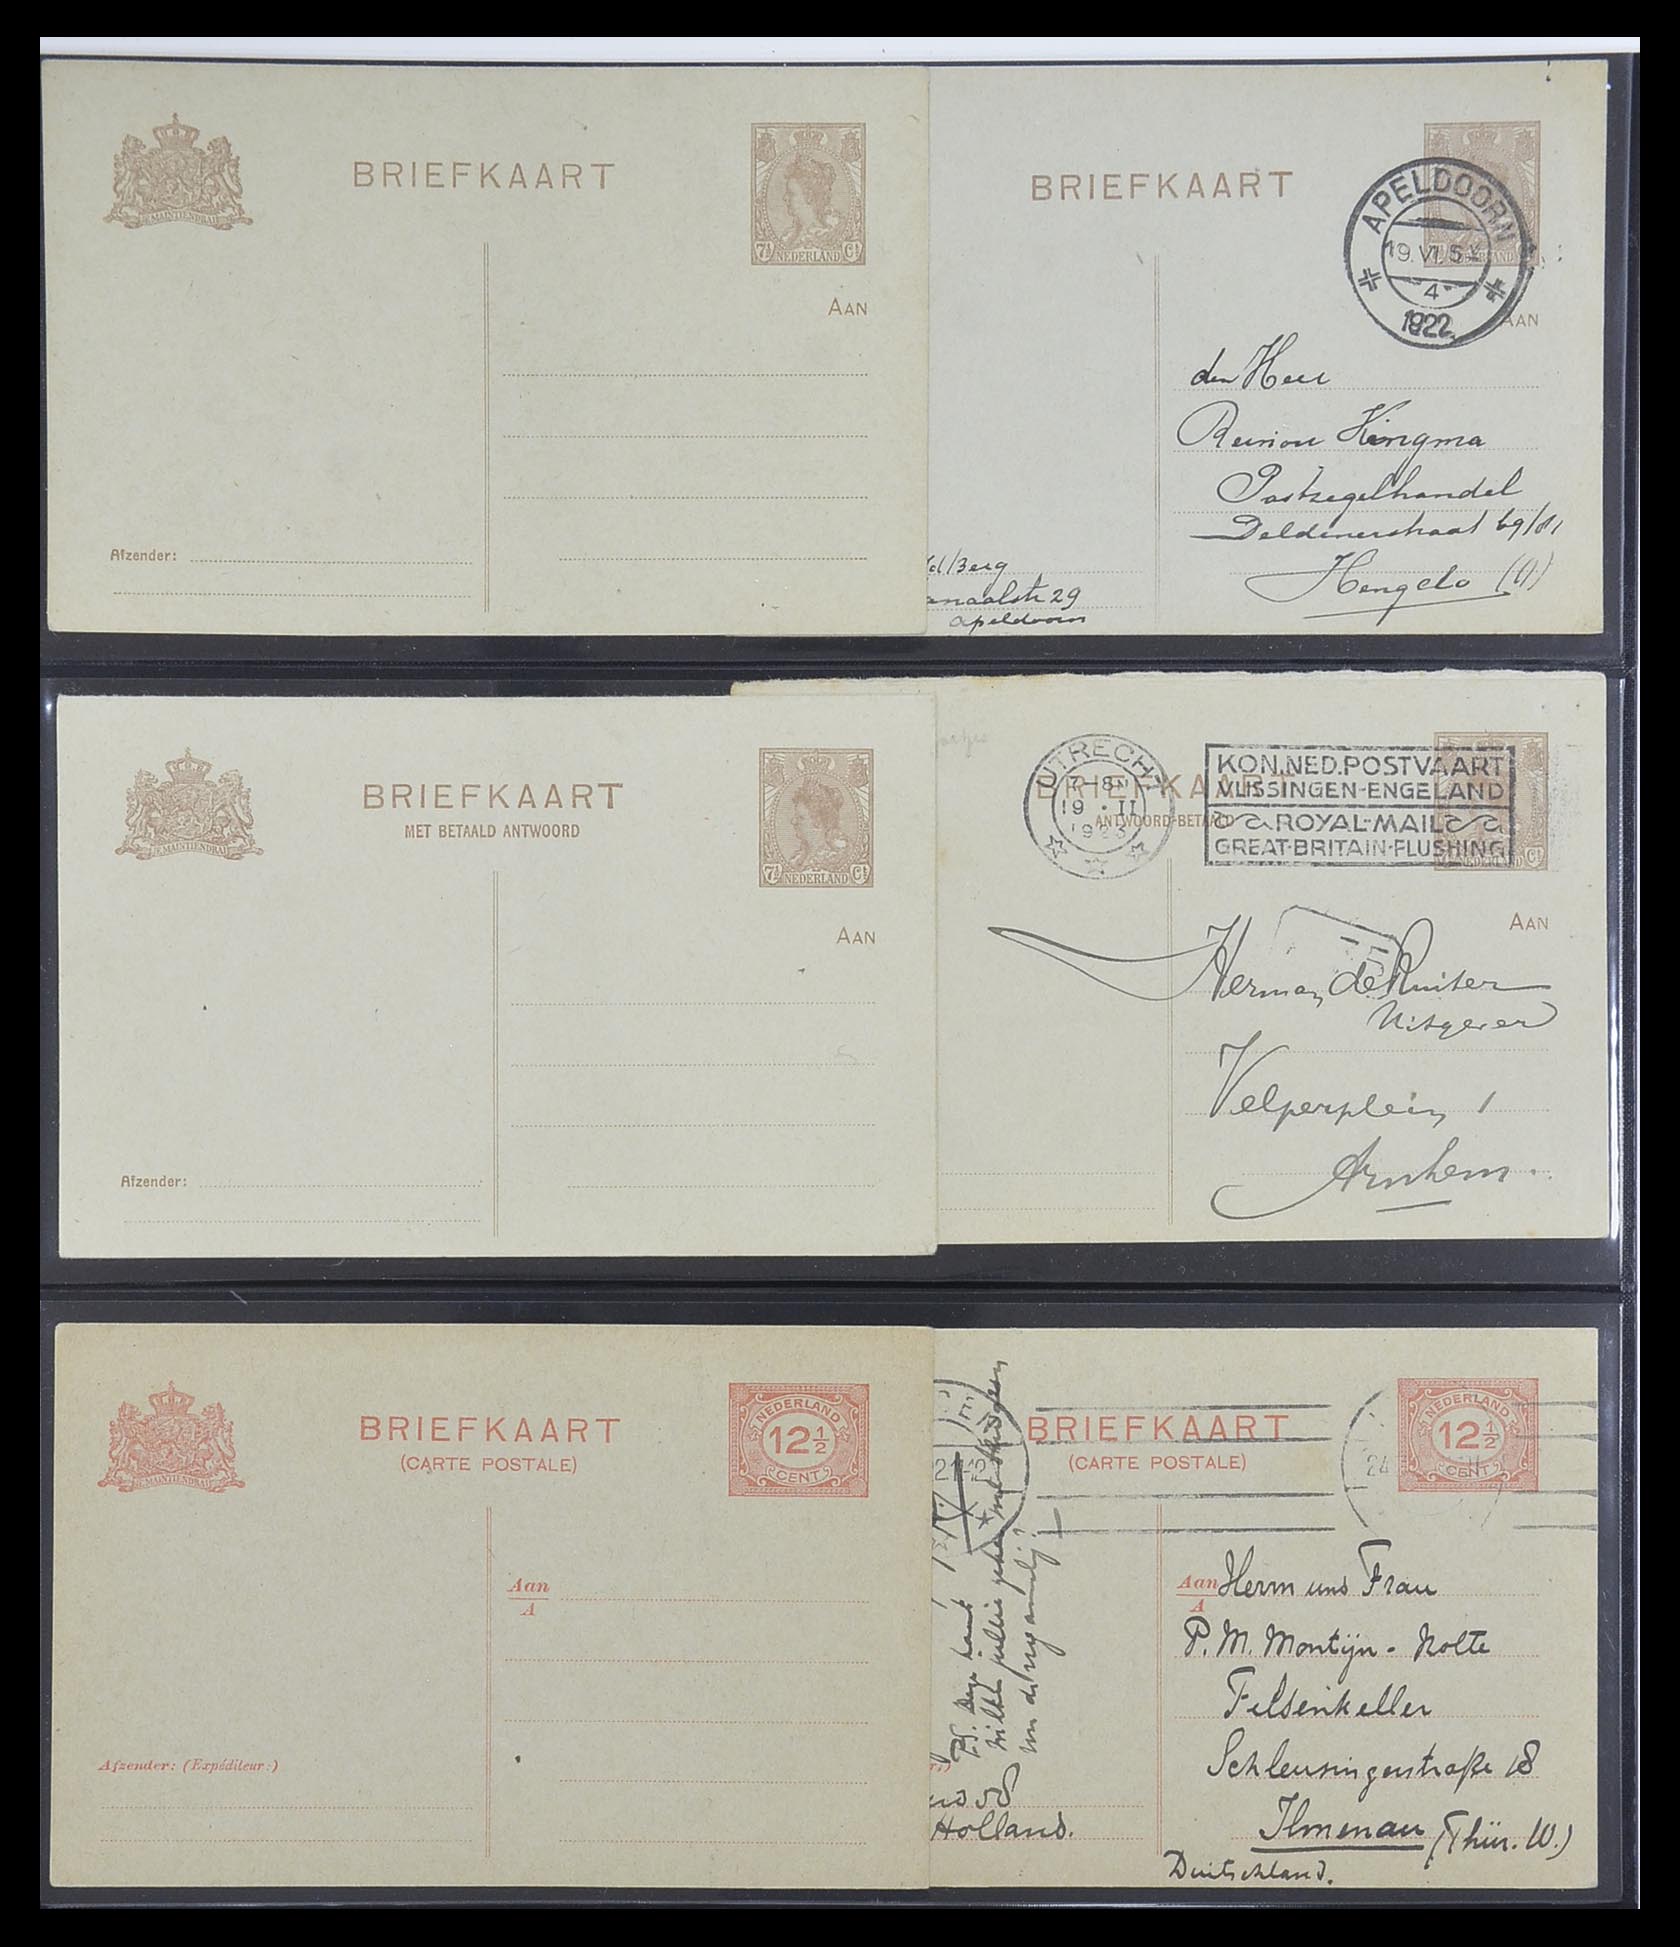 BRIEFKAART
JE MAINTIENDRAI
7½ NEDERLAND Ct
AAN
Afzender:
BRIEFKAART
APELDOORN
19.VI.5
4
1922
AAN
den Heer
Kingma
Postzegelhandel
Deldenerstraat 69/81
Hengelo (O)
v/d Berg
anaalstr 29
Apeldoorn
BRIEFKAART
MET BETAALD ANTWOORD
JE MAINTIENDRAI
7½ NEDERLAND Ct
AAN
Afzender:
BRIEFKAART
ANTWOORD-BETAALD
UTRECHT
7-8N
19.II
1923
KON.NED.POSTVAART
VLISSINGEN-ENGELAND
ROYAL-MAIL
GREAT-BRITAIN-FLUSHING
Ct
AAN
Herman de Ruiter
Uitgever
Velperplein 1
Arnhem.
BRIEFKAART
(CARTE POSTALE)
JE MAINTIENDRAI
NEDERLAND
12½
CENT
Aan
A
Afzender: (Expéditeur:)
BRIEFKAART
(CARTE POSTALE)
NEDERLAND
12½
CENT
24
Aan Herrn und Frau
A
P. M. Montijn - Nolte
Felsenkeller
Schleusingerstraße 18
Ilmenau (Thür. W.)
Duitschland.
r.)
58
Holland.
P.S. Deze kaart